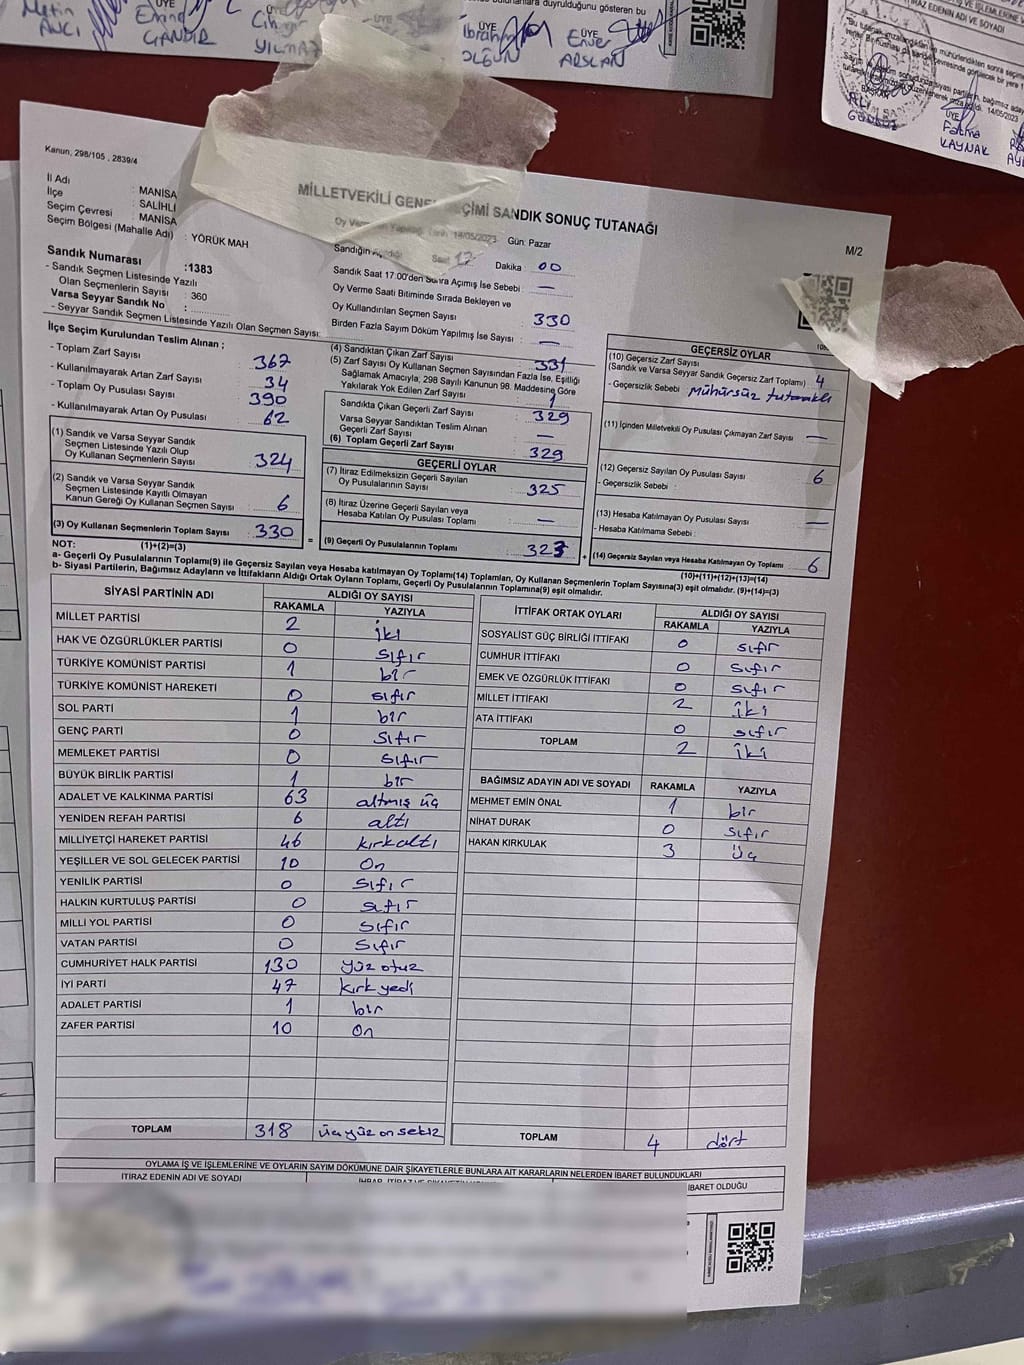 Metin
AVCI
ÜYE
GANDIR
Cihan
YILMAZ
ÜYE
ÜYE
İbrahim
OLGUN
ÜYE
Enver
ARSLAN
duyrulduğunu gösteren bu
İTİRAZ EDENİN ADI VE SOYADI
14/05/2023
BAŞKAN
ALİ
ÜYE
Fatma
KAYNAK
Kanun, 298/105 , 2839/4
MİLLETVEKİLİ GENEL SEÇİMİ SANDIK SONUÇ TUTANAĞI
M/2
İl Adı : MANİSA
İlçe : SALİHLİ
Seçim Çevresi : MANİSA
Seçim Bölgesi (Mahalle Adı) : YÖRÜK MAH
14/05/2023 Gün: Pazar
Saat 17 Dakika 00
Sandık Saat 17:00'den Sonra Açımış İse Sebebi : —
Oy Verme Saati Bitiminde Sırada Bekleyen ve
Oy Kullandırılan Seçmen Sayısı : 330
Birden Fazla Sayım Döküm Yapılmış İse Sayısı : —
Sandık Numarası :1383
- Sandık Seçmen Listesinde Yazılı
Olan Seçmenlerin Sayısı : 360
Varsa Seyyar Sandık No :
- Seyyar Sandık Seçmen Listesinde Yazılı Olan Seçmen Sayısı:
İlçe Seçim Kurulundan Teslim Alınan ;
- Toplam Zarf Sayısı : 367
- Kullanılmayarak Artan Zarf Sayısı : 34
- Toplam Oy Pusulası Sayısı : 390
- Kullanılmayarak Artan Oy Pusulası : 62
(1) Sandık ve Varsa Seyyar Sandık
Seçmen Listesinde Yazılı Olup
Oy Kullanan Seçmenlerin Sayısı : 324
(2) Sandık ve Varsa Seyyar Sandık
Seçmen Listesinde Kayıtlı Olmayan
Kanun Gereği Oy Kullanan Seçmen Sayısı : 6
(3) Oy Kullanan Seçmenlerin Toplam Sayısı : 330
(1)+(2)=(3)
(4) Sandıktan Çıkan Zarf Sayısı : 331
(5) Zarf Sayısı Oy Kullanan Seçmen Sayısından Fazla İse, Eşitliği
Sağlamak Amacıyla, 298 Sayılı Kanunun 98. Maddesine Göre
Yakılarak Yok Edilen Zarf Sayısı : 1
Sandıkta Çıkan Geçerli Zarf Sayısı : 329
Varsa Seyyar Sandıktan Teslim Alınan
Geçerli Zarf Sayısı : —
(6) Toplam Geçerli Zarf Sayısı : 329
GEÇERLİ OYLAR
(7) İtiraz Edilmeksizin Geçerli Sayılan
Oy Pusulalarının Sayısı : 325
(8) İtiraz Üzerine Geçerli Sayılan veya
Hesaba Katılan Oy Pusulası Toplamı : —
= (9) Geçerli Oy Pusulalarının Toplamı : 323
GEÇERSİZ OYLAR
(10) Geçersiz Zarf Sayısı
(Sandık ve Varsa Seyyar Sandık Geçersiz Zarf Toplamı) : 4
- Geçersizlik Sebebi : Mühürsüz tutanaklı
(11) İçinden Milletvekili Oy Pusulası Çıkmayan Zarf Sayısı : —
(12) Geçersiz Sayılan Oy Pusulası Sayısı : 6
- Geçersizlik Sebebi :
(13) Hesaba Katılmayan Oy Pusulası Sayısı : —
- Hesaba Katılmama Sebebi :
+ (14) Geçersiz Sayılan veya Hesaba Katılmayan Oy Toplamı : 6
(10)+(11)+(12)+(13)=(14)
NOT:
a- Geçerli Oy Pusulalarının Toplamı(9) ile Geçersiz Sayılan veya Hesaba katılmayan Oy Toplamı(14) Toplamları, Oy Kullanan Seçmenlerin Toplam Sayısına(3) eşit olmalıdır. (9)+(14)=(3)
b- Siyasi Partilerin, Bağımsız Adayların ve İttifakların Aldığı Ortak Oyların Toplamı, Geçerli Oy Pusulalarının Toplamına(9) eşit olmalıdır.
SİYASİ PARTİNİN ADI ALDIĞI OY SAYISI
RAKAMLA YAZIYLA
MİLLET PARTİSİ 2 iki
HAK VE ÖZGÜRLÜKLER PARTİSİ 0 sıfır
TÜRKİYE KOMÜNİST PARTİSİ 1 bir
TÜRKİYE KOMÜNİST HAREKETİ 0 sıfır
SOL PARTİ 1 bir
GENÇ PARTİ 0 sıfır
MEMLEKET PARTİSİ 0 sıfır
BÜYÜK BİRLİK PARTİSİ 1 bir
ADALET VE KALKINMA PARTİSİ 63 altmış üç
YENİDEN REFAH PARTİSİ 6 altı
MİLLİYETÇİ HAREKET PARTİSİ 46 kırkaltı
YEŞİLLER VE SOL GELECEK PARTİSİ 10 On
YENİLİK PARTİSİ 0 sıfır
HALKIN KURTULUŞ PARTİSİ 0 sıfır
MİLLİ YOL PARTİSİ 0 sıfır
VATAN PARTİSİ 0 sıfır
CUMHURİYET HALK PARTİSİ 130 yüz otuz
İYİ PARTİ 47 kırk yedi
ADALET PARTİSİ 1 bir
ZAFER PARTİSİ 10 On
TOPLAM 318 üçyüz on sekiz
İTTİFAK ORTAK OYLARI ALDIĞI OY SAYISI
RAKAMLA YAZIYLA
SOSYALİST GÜÇ BİRLİĞİ İTTİFAKI 0 sıfır
CUMHUR İTTİFAKI 0 sıfır
EMEK VE ÖZGÜRLÜK İTTİFAKI 0 sıfır
MİLLET İTTİFAKI 2 iki
ATA İTTİFAKI 0 sıfır
TOPLAM 2 iki
BAĞIMSIZ ADAYIN ADI VE SOYADI RAKAMLA YAZIYLA
MEHMET EMİN ÖNAL 1 bir
NİHAT DURAK 0 sıfır
HAKAN KIRKULAK 3 üç
TOPLAM 4 dört
OYLAMA İŞ VE İŞLEMLERİNE VE OYLARIN SAYIM DÖKÜMÜNE DAİR ŞİKAYETLERLE BUNLARA AİT KARARLARIN NELERDEN İBARET BULUNDUKLARI
İTİRAZ EDENİN ADI VE SOYADI
İBARET OLDUĞU